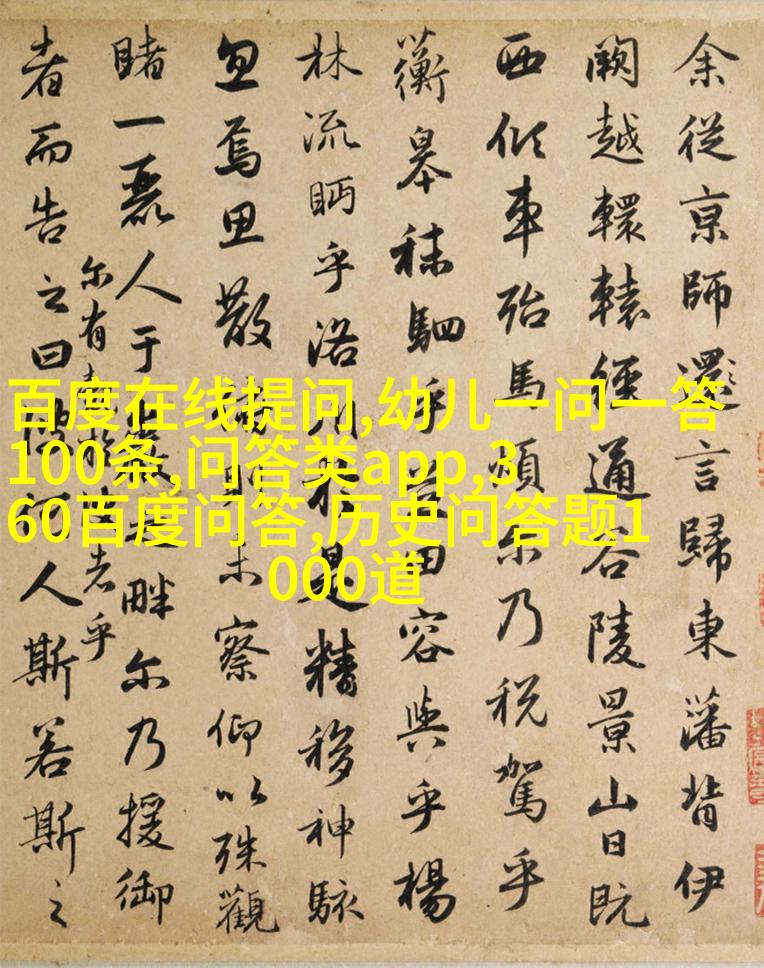 余從京師還言歸東藩背伊
闕越轘轅經通谷陵景山日既
西傾車殆馬煩尔乃税駕乎
蘅皋秣駟乎芝田容與乎楊
林流眄乎洛川於是精移神駭
忽焉思散未察仰以殊觀
睹一麗人于畔尔乃援御
者而告之曰
尔有者乎
人斯若斯之
百度在线提问,幼儿一问一答
100条,问答类app,3
60百度问答,历史问答题1
000道